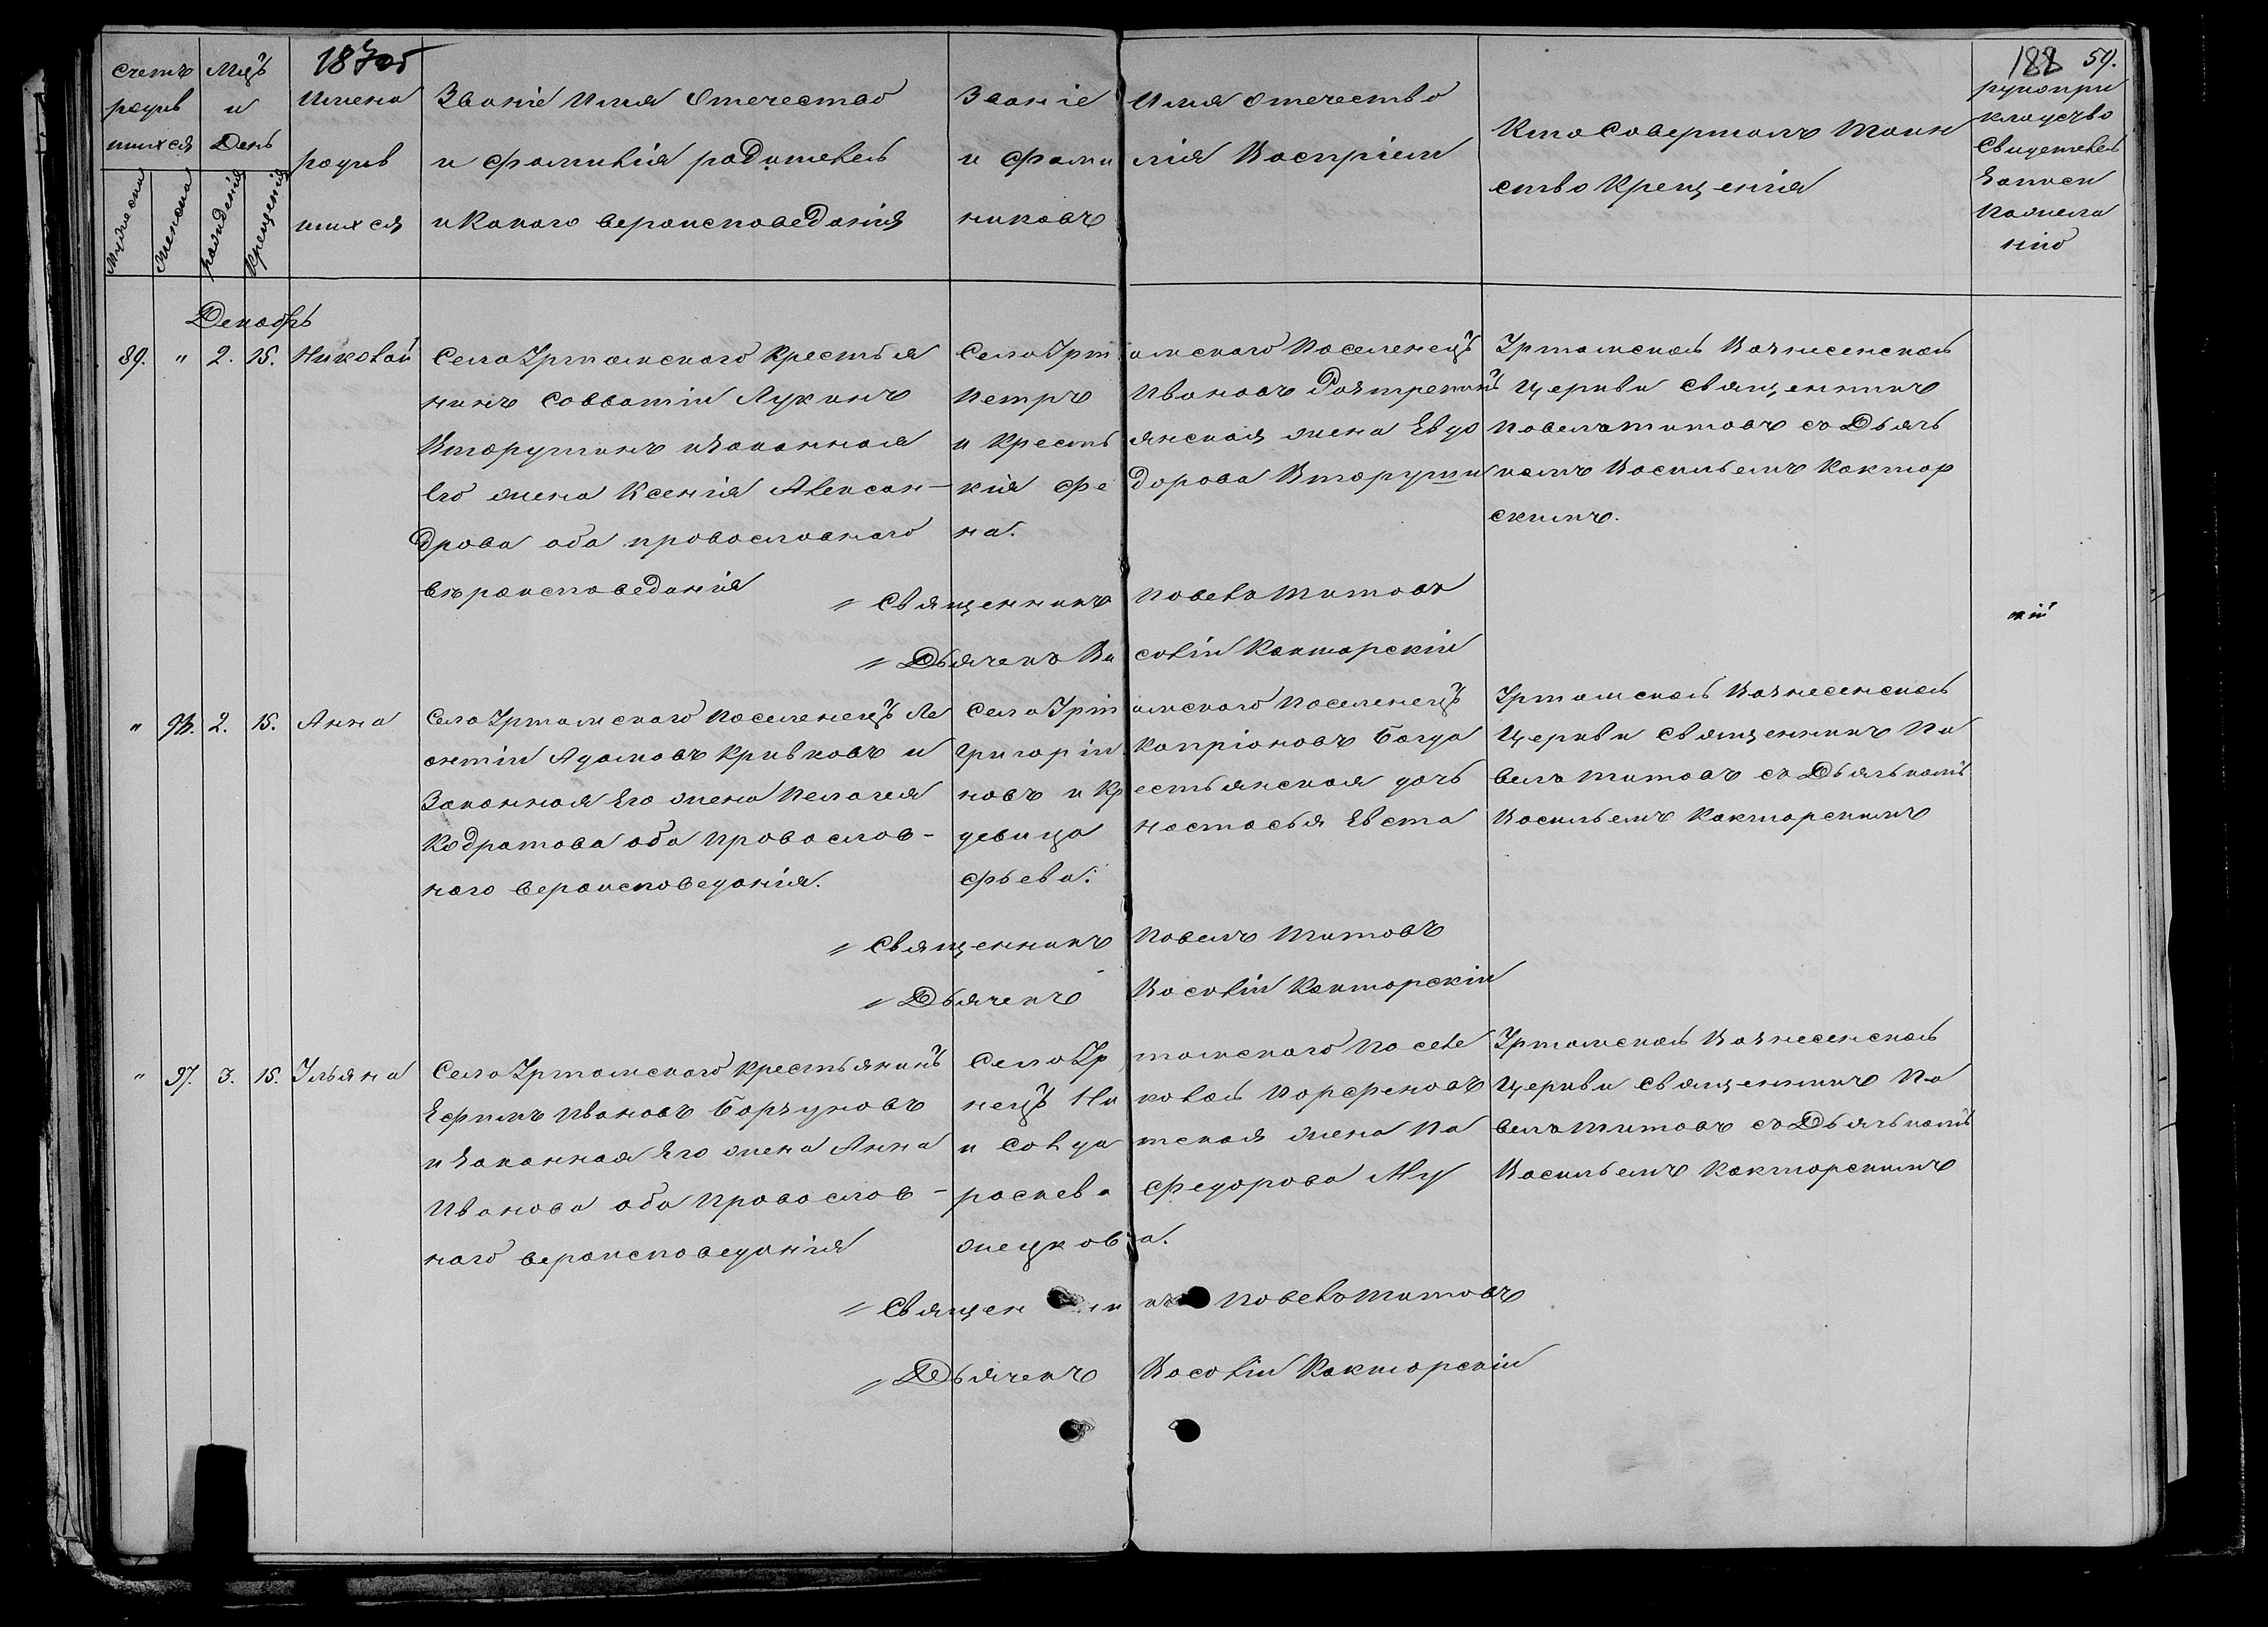 1870 г
188 59.
Счетъ родив шихся
Мцъ и День
Имена родив шихся
Званіе Имя Отечество и фамилія родителей и какого вероисповеданія
Званіе Имя Отечество и фамилія Воспріем никовъ
Кто Совершалъ Таин ство Крещенія
рукопри кладство Свидетелей Записи по желанію
Мужеска
Женска
рожденія
Крещенія
Декабрь
89. " 2. 15. Николай
Села Уртамского Крестья
нинъ Савватій Лукинъ
Вторушинъ и Законная
Его жена Ксенія Алексан-
дрова оба православнаго
въроисповеданія
Села Уртамского Поселенецъ
Петръ Ивановъ Розтрепинъ
и Крестьянская жена Евдо
кія Федорова Вторушин
на.
Уртамской Вознесенской
Церкви Священникъ
Павелъ Титовъ съ Дьячь
комъ Васильемъ Кактор
скимъ.
" Священникъ Павелъ Титовъ
" Дьячекъ Василій Какторскій
" 96. 2. 15. Анна
Села Уртамского Поселенецъ Ле
онтій Адамовъ Кривковъ и
Законная Его жена Пелагея
Кодратова оба Православ-
наго вероисповеданія.
Села Уртамского Поселенецъ
Григорій Капріоновъ Богда
новъ и Крестьянская дочь
девица Настасья Евста
фьева.
Уртамской Вознесенской
Церкви Священникъ Па
велъ Титовъ съ Дьячькомъ
Васильемъ Какторскимъ
" Священникъ Павелъ Титовъ
" Дьячекъ Василій Какторскій
" 97. 3. 15. Ульяна
Села Уртамского Крестьянинъ
Ефимъ Ивановъ Борзуновъ
и Законная Его жена Анна
Иванова оба Православ-
наго вероисповеданія
Села Уртамского Посе
ленецъ Николай Парфеновъ
и Солдатская жена Па
раскева Федорова Му
жецкова.
Уртамской Вознесенской
Церкви Священникъ Па
велъ Титовъ съ Дьячькомъ
Васильемъ Какторскимъ
" Священникъ Павелъ Титовъ
" Дьячекъ Василій Какторскій